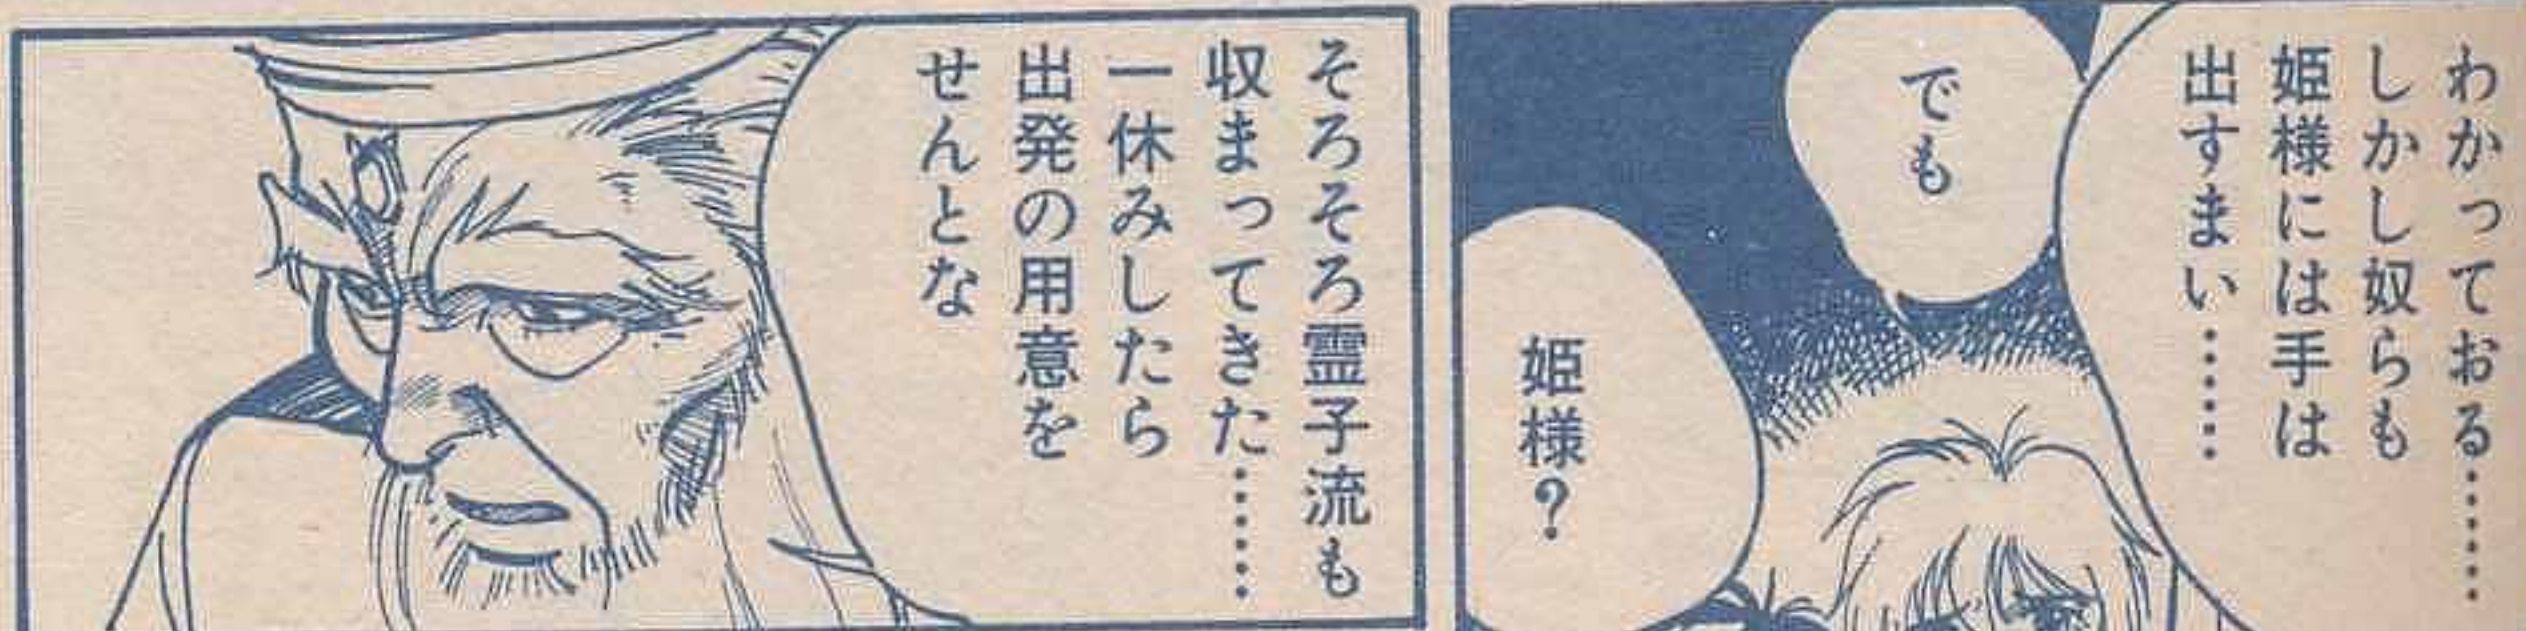 わかっておる………
しかし奴らも
姫様には手は
出すまい………
でも
姫様？
そろそろ霊子流も
収まってきた………
一休みしたら
出発の用意を
せんとな